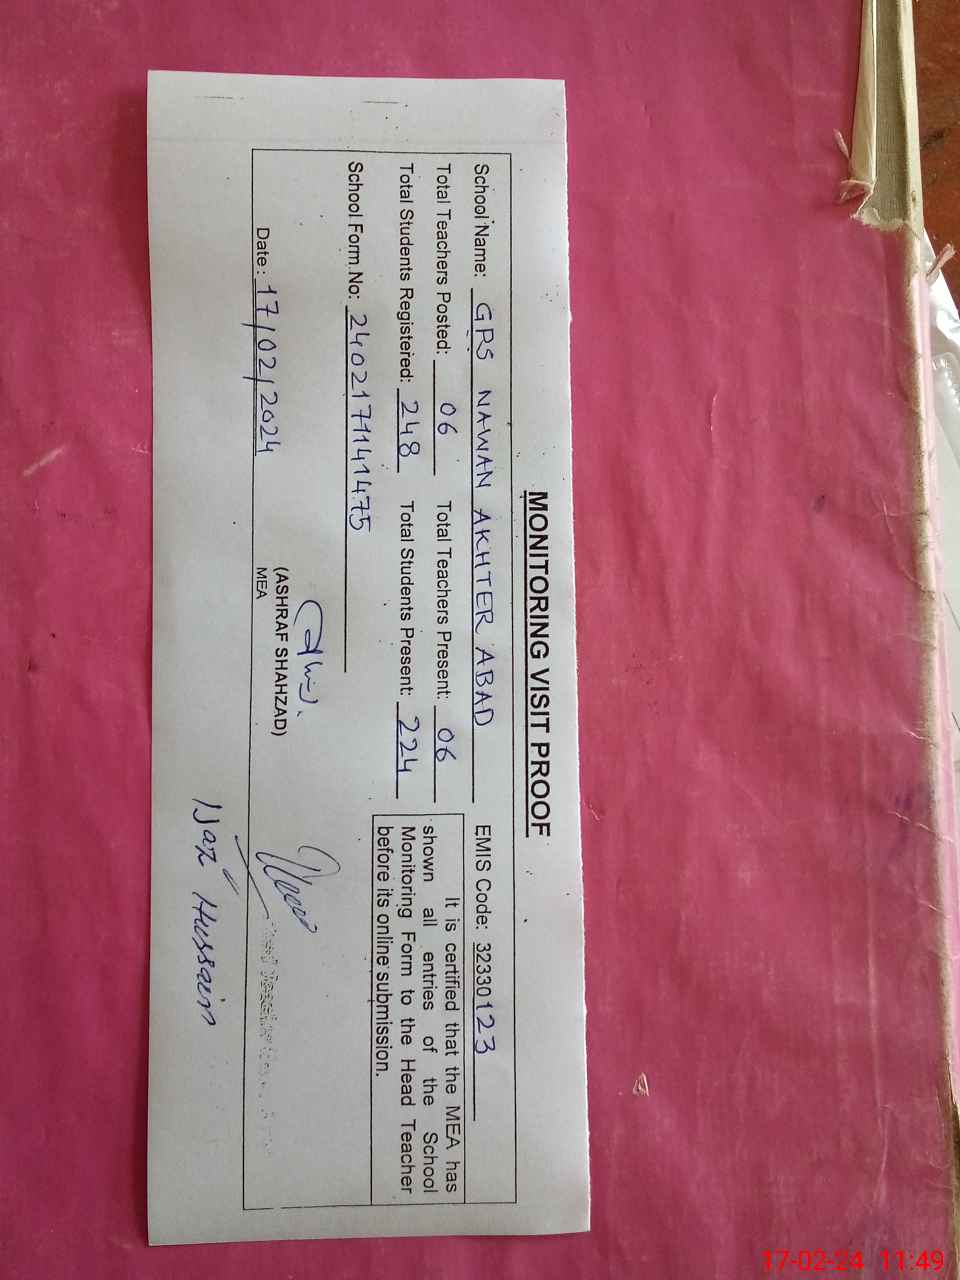 MONITORING VISIT PROOF
School Name: GPS NAWAN AKHTER ABAD EMIS Code: 32330123
Total Teachers Posted: 06 Total Teachers Present: 06
Total Students Registered: 248 Total Students Present: 224
It is certified that the MEA has
shown all entries of the School
Monitoring Form to the Head Teacher
before its online submission.
School Form No: 2402171141475
(ASHRAF SHAHZAD)
MEA
Date: 17/02/2024
Head Teacher
Ijaz Hussain
17-02-24 11:49